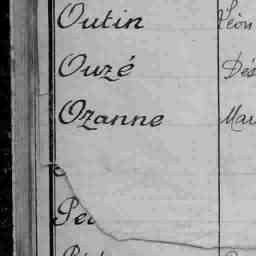 Outin Léon
Ouzé Dés
Ozanne Mau
Pe